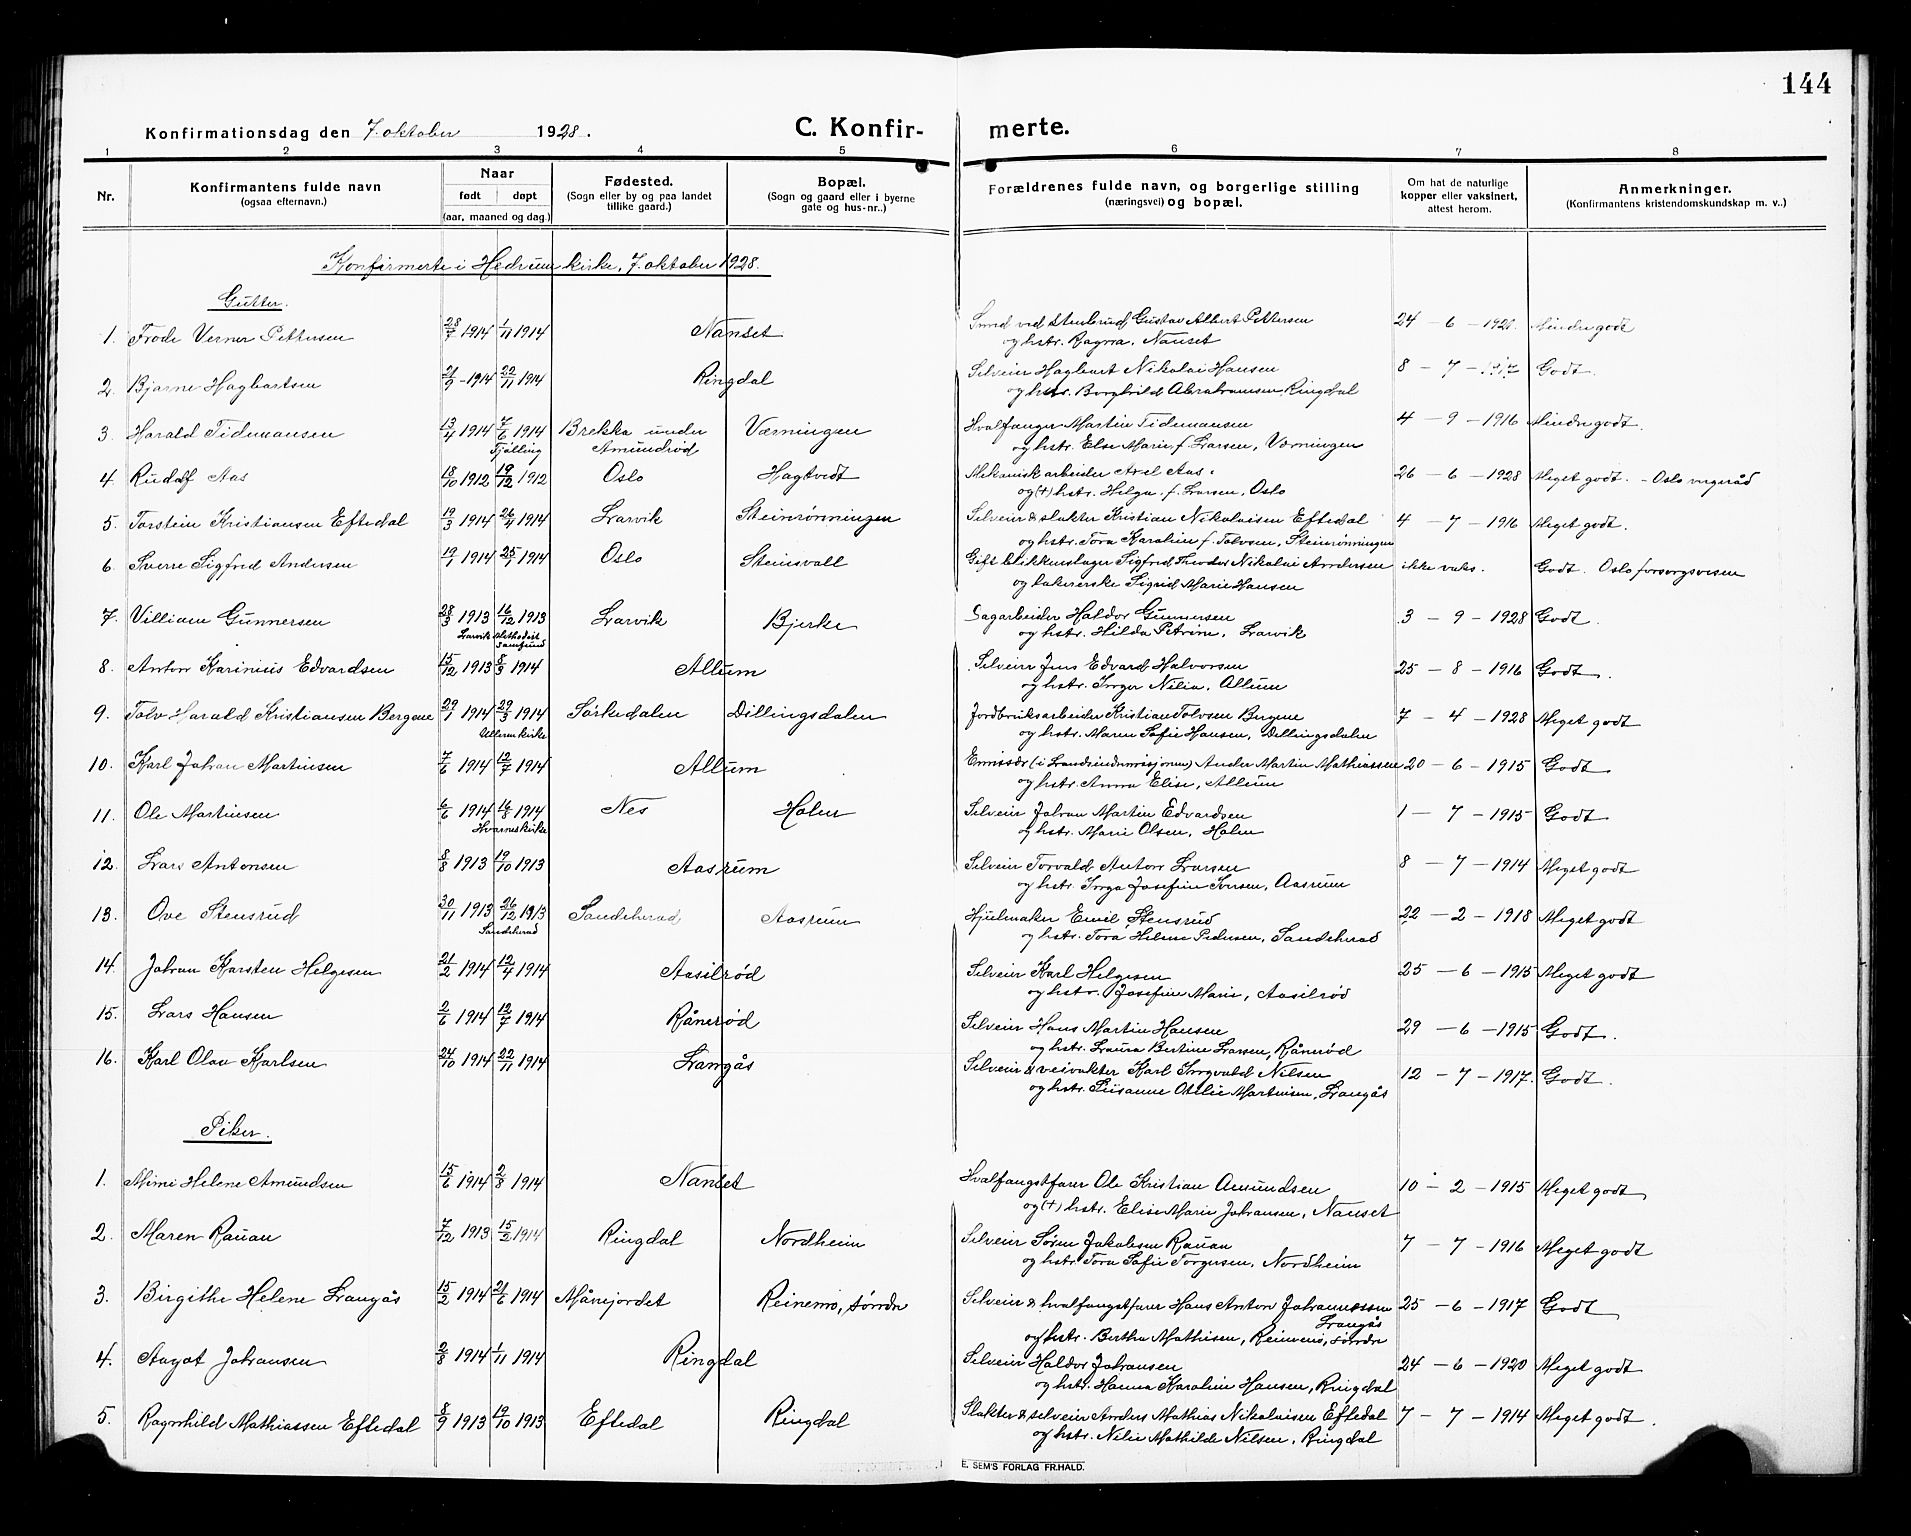 144
Konfirmationsdag den 7. oktober 1928. C. Konfir- merte.
1 2 3 4 5 6 7 8
Nr. Konfirmantens fulde navn (ogsaa efternavn.) Naar født døpt (aar, maaned og dag.) Fødested. (Sogn eller by og paa landet tillike gaard.) Bopæl. (Sogn og gaard eller i byerne gate og hus-nr..) Forældrenes fulde navn, og borgerlige stilling (næringsvei) og bopæl. Om hat de naturlige kopper eller vaksinert, attest herom. Anmerkninger. (Konfirmantens kristendomskundskap m. v..)
Konfirmerte i Hedrum kirke, 7. oktober 1928.
Gutter.
1. Frode Verner Pettersen 28/7 1914 1/11 1914 Nanset Smed ved stenbrud Gustav Albert Pettersen 24 - 6 - 1920. Mindre godt
og hstr. Ragna, Nanset
2. Bjarne Hagbartsen 21/9 - 1914 22/11 1914 Ringdal Selveier Hagbart Nikolai Hansen 8 - 7 - 1917 Godt.
og hstr. Borghild Abrahamsen, Ringdal
3. Harald Tidemansen 13/4 1914 7/6 1914 Brekke under Værningen Hvalfanger Martin Tidemansen 4 - 9 - 1916 Mindre godt.
Tjølling Amundrød og hstr. Else Marie f. Larsen, Værningen
4. Rudolf Aas 18/10 1912 19/12 1912 Oslo Hagtvedt Mekanisk arbeider Axel Aas. 26 - 6 - 1928 Meget godt. - Oslo vergeråd
og (+) hstr. Helga f. Larsen, Oslo
5. Torstein Kristiansen Eftedal 19/3 1914 26/4 1914 Larvik Steinrønningen Selveier & slakter Kristian Nikolaisen Eftedal 4 - 7 - 1916 Meget godt.
og hstr. Tora Karoline f. Tolvsen, Steinrønningen
6. Sverre Sigfred Andersen 19/1 1914 25/7 1914 Oslo Steinsvall Gift blikkenslager Sigfred Theodor Nikolai Andersen ikke vaks. Godt. Oslo forsorgsvesen
og bakerske Sigrid Marie Hansen
7. Villiam Gunnersen 28/3 1913 16/12 1913 Larvik Bjerke Sagarbeider Haldor Gunnersen 3 - 9 - 1928 Godt.
Larvik Methodist samfund og hstr. Hilda Petrine, Larvik
8. Anton Karinius Edvardsen 15/12 1913 8/3 1914 Allum Selveier Jens Edvard Halvorsen 25 - 8 - 1916 Godt.
og hstr. Inger Nilia, Allum
9. Tolv Harald Kristiansen Bergene 29/1 1914 29/3 1914 Sørkedalen Dillingsdalen Jordbruksarbeider Kristian Tolvsen Bergene 7 - 4 - 1928 Meget godt
Ullern kirke og hstr. Maren Sofie Hansen, Dillingsdalen
10. Karl Johan Martinsen 7/6 1914 12/7 1914 Allum Emissær (i Landsindremisjonen) Ander Martin Mathiassen 20 - 6 - 1915 Godt
og hstr. Anna Elise, Allum
11. Ole Martinsen 6/6 1914 16/8 1914 Nes Holen Selveier Johan Martin Edvardsen 1 - 7 - 1915 Godt
Hvarnes kirke og hstr. Marie Olsen, Holen
12. Lars Antonsen 8/8 1913 19/10 1913 Aasrum Selveier Torvald Anton Larsen 8 - 7 - 1914 Meget godt
og hstr. Inga Josefine Iversen, Aasrum
13. Ove Stensrud 30/11 1913 26/12 1913 Sandeherad Aasrum Hjulmaker Emil Stensrud 22 - 2 - 1918 Meget godt
Sandeherad og hstr. Tora Helene Pedersen, Sandeherad
14. Johan Karsten Helgesen 21/2 1914 12/4 1914 Aasilrød Selveier Karl Helgesen 25 - 6 - 1915 Meget godt
og hstr. Josefine Marie, Aasilrød
15. Lars Hansen 2/6 1914 12/7 1914 Rånerød Selveier Hans Martin Hansen 29 - 6 - 1915 Godt.
og hstr. Laura Bertine Larsen, Rånerød
16. Karl Olav Karlsen 24/10 1914 22/11 1914 Langås Selveier & veivakter Karl Ingvald Nilsen 12 - 7 - 1917. Godt.
og hstr. Susanne Otilie Martinsen, Langås
Piker.
1. Mimi Helene Amundsen 15/6 1914 2/8 1914 Nanset Hvalfangstfarer Ole Kristian Amundsen 10 - 2 - 1915 Meget godt
og (+) hstr. Elise Marie Johansen, Nanset
2. Maren Rauan 7/12 1913 15/2 1914 Ringdal Nordheim Selveier Søren Jakobsen Rauan 7 - 7 - 1916 Meget godt
og hstr. Tora Sofie Torgersen, Nordheim
3. Birgithe Helene Langås 15/2 1914 21/6 1914 Månejordet Reinemo, søndre Selveier & hvalfangstfarer Hans Anton Johannessen 25 - 6 - 1917 Godt
Langås
og hstr. Bertha Mathisen, Reinemo, søndre
4. Aagot Johansen 2/8 1914 1/11 1914 Ringdal Selveier Haldor Johansen 24 - 6 - 1920 Meget godt
og hstr. Hanna Karoline Hansen, Ringdal
5. Ragnhild Mathiassen Eftedal 8/9 1913 19/10 1913 Eftedal Ringdal Slakter & selveier Anders Mathias Nikolaisen Eftedal 7 - 7 - 1914 Meget godt.
og hstr. Nelie Mathilde Nilsen, Ringdal
E. SEM'S FORLAG FR.HALD.